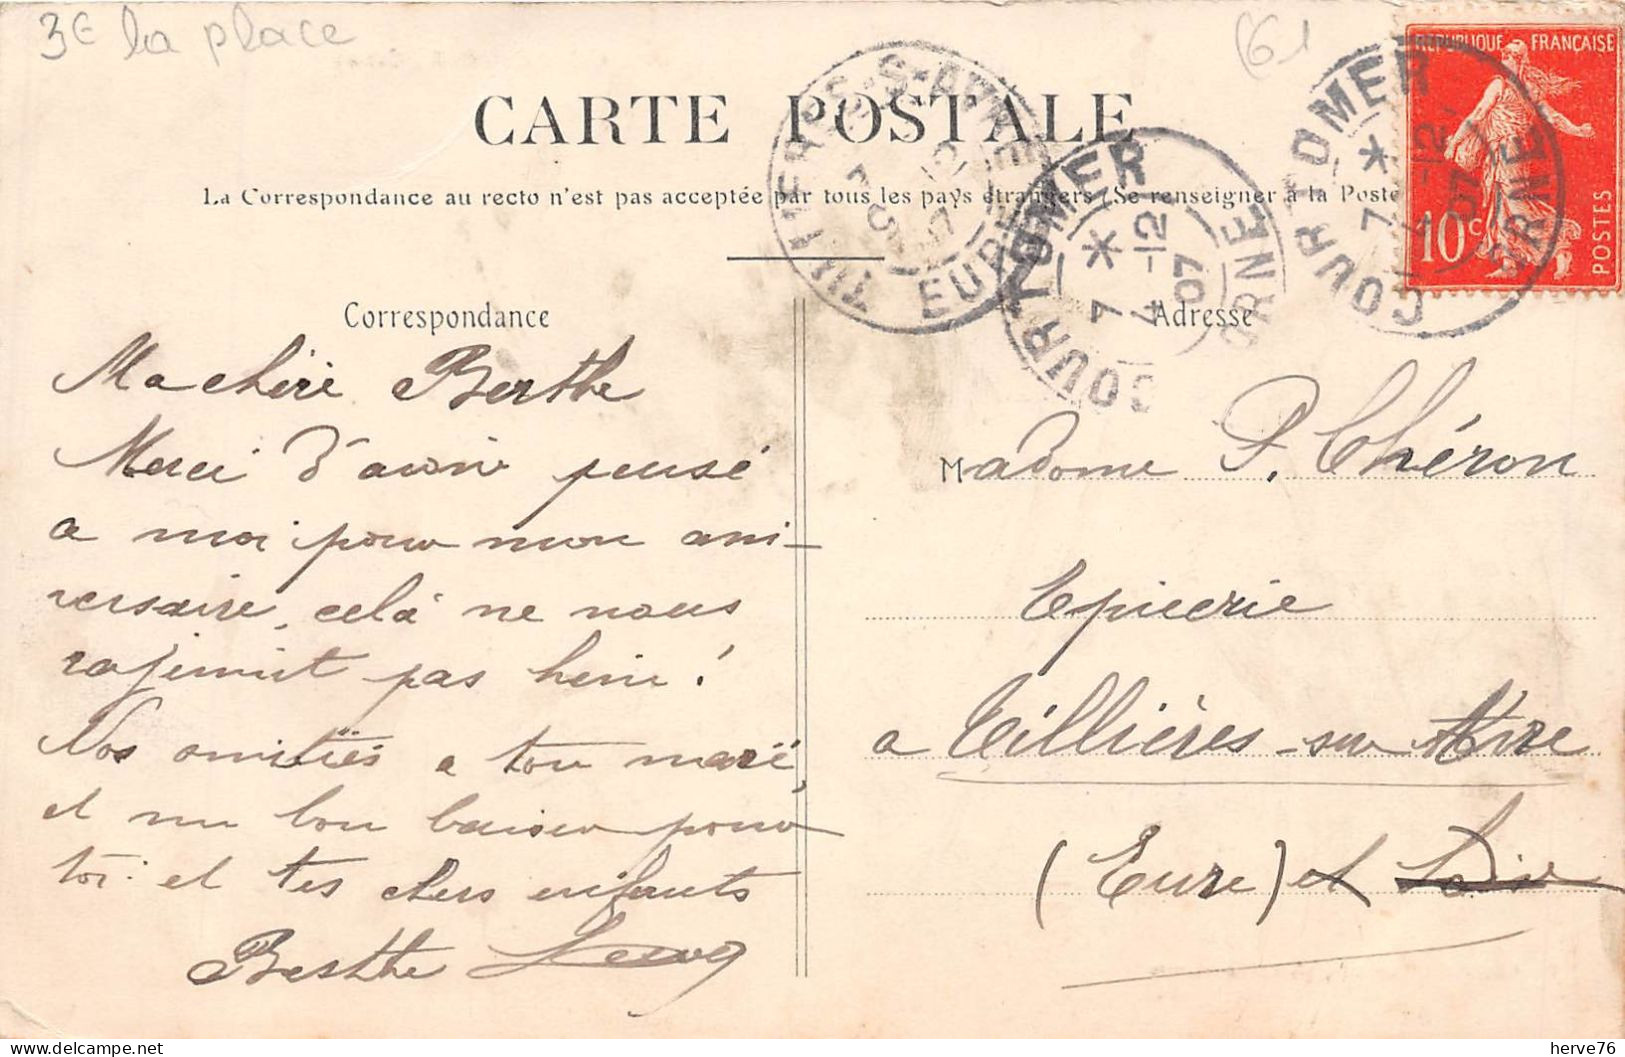 3€ la place
(61
CARTE POSTALE
La Correspondance au recto n'est pas acceptée par tous les pays étrangers (Se renseigner à la Poste
REPUBLIQUE FRANÇAISE
10c
POSTES
TILLIERES-S-AVRE
EURE
COURTOMER
7 *
4-12
07
ORNE
COURTOMER
7 *
4-12
07
ORNE
Correspondance
Ma chère Berthe
Merci d'avoir pensé
a moi pour mon ani-
versaire, celà ne nous
rajeunit pas hein!
Nos amitiés a ton mari,
et un bon baiser pour
toi et tes chers enfants
Berthe
Adresse
Madame P. Chéron
Epicerie
a Tillières-sur Avre
(Eure) et Loir
herve76